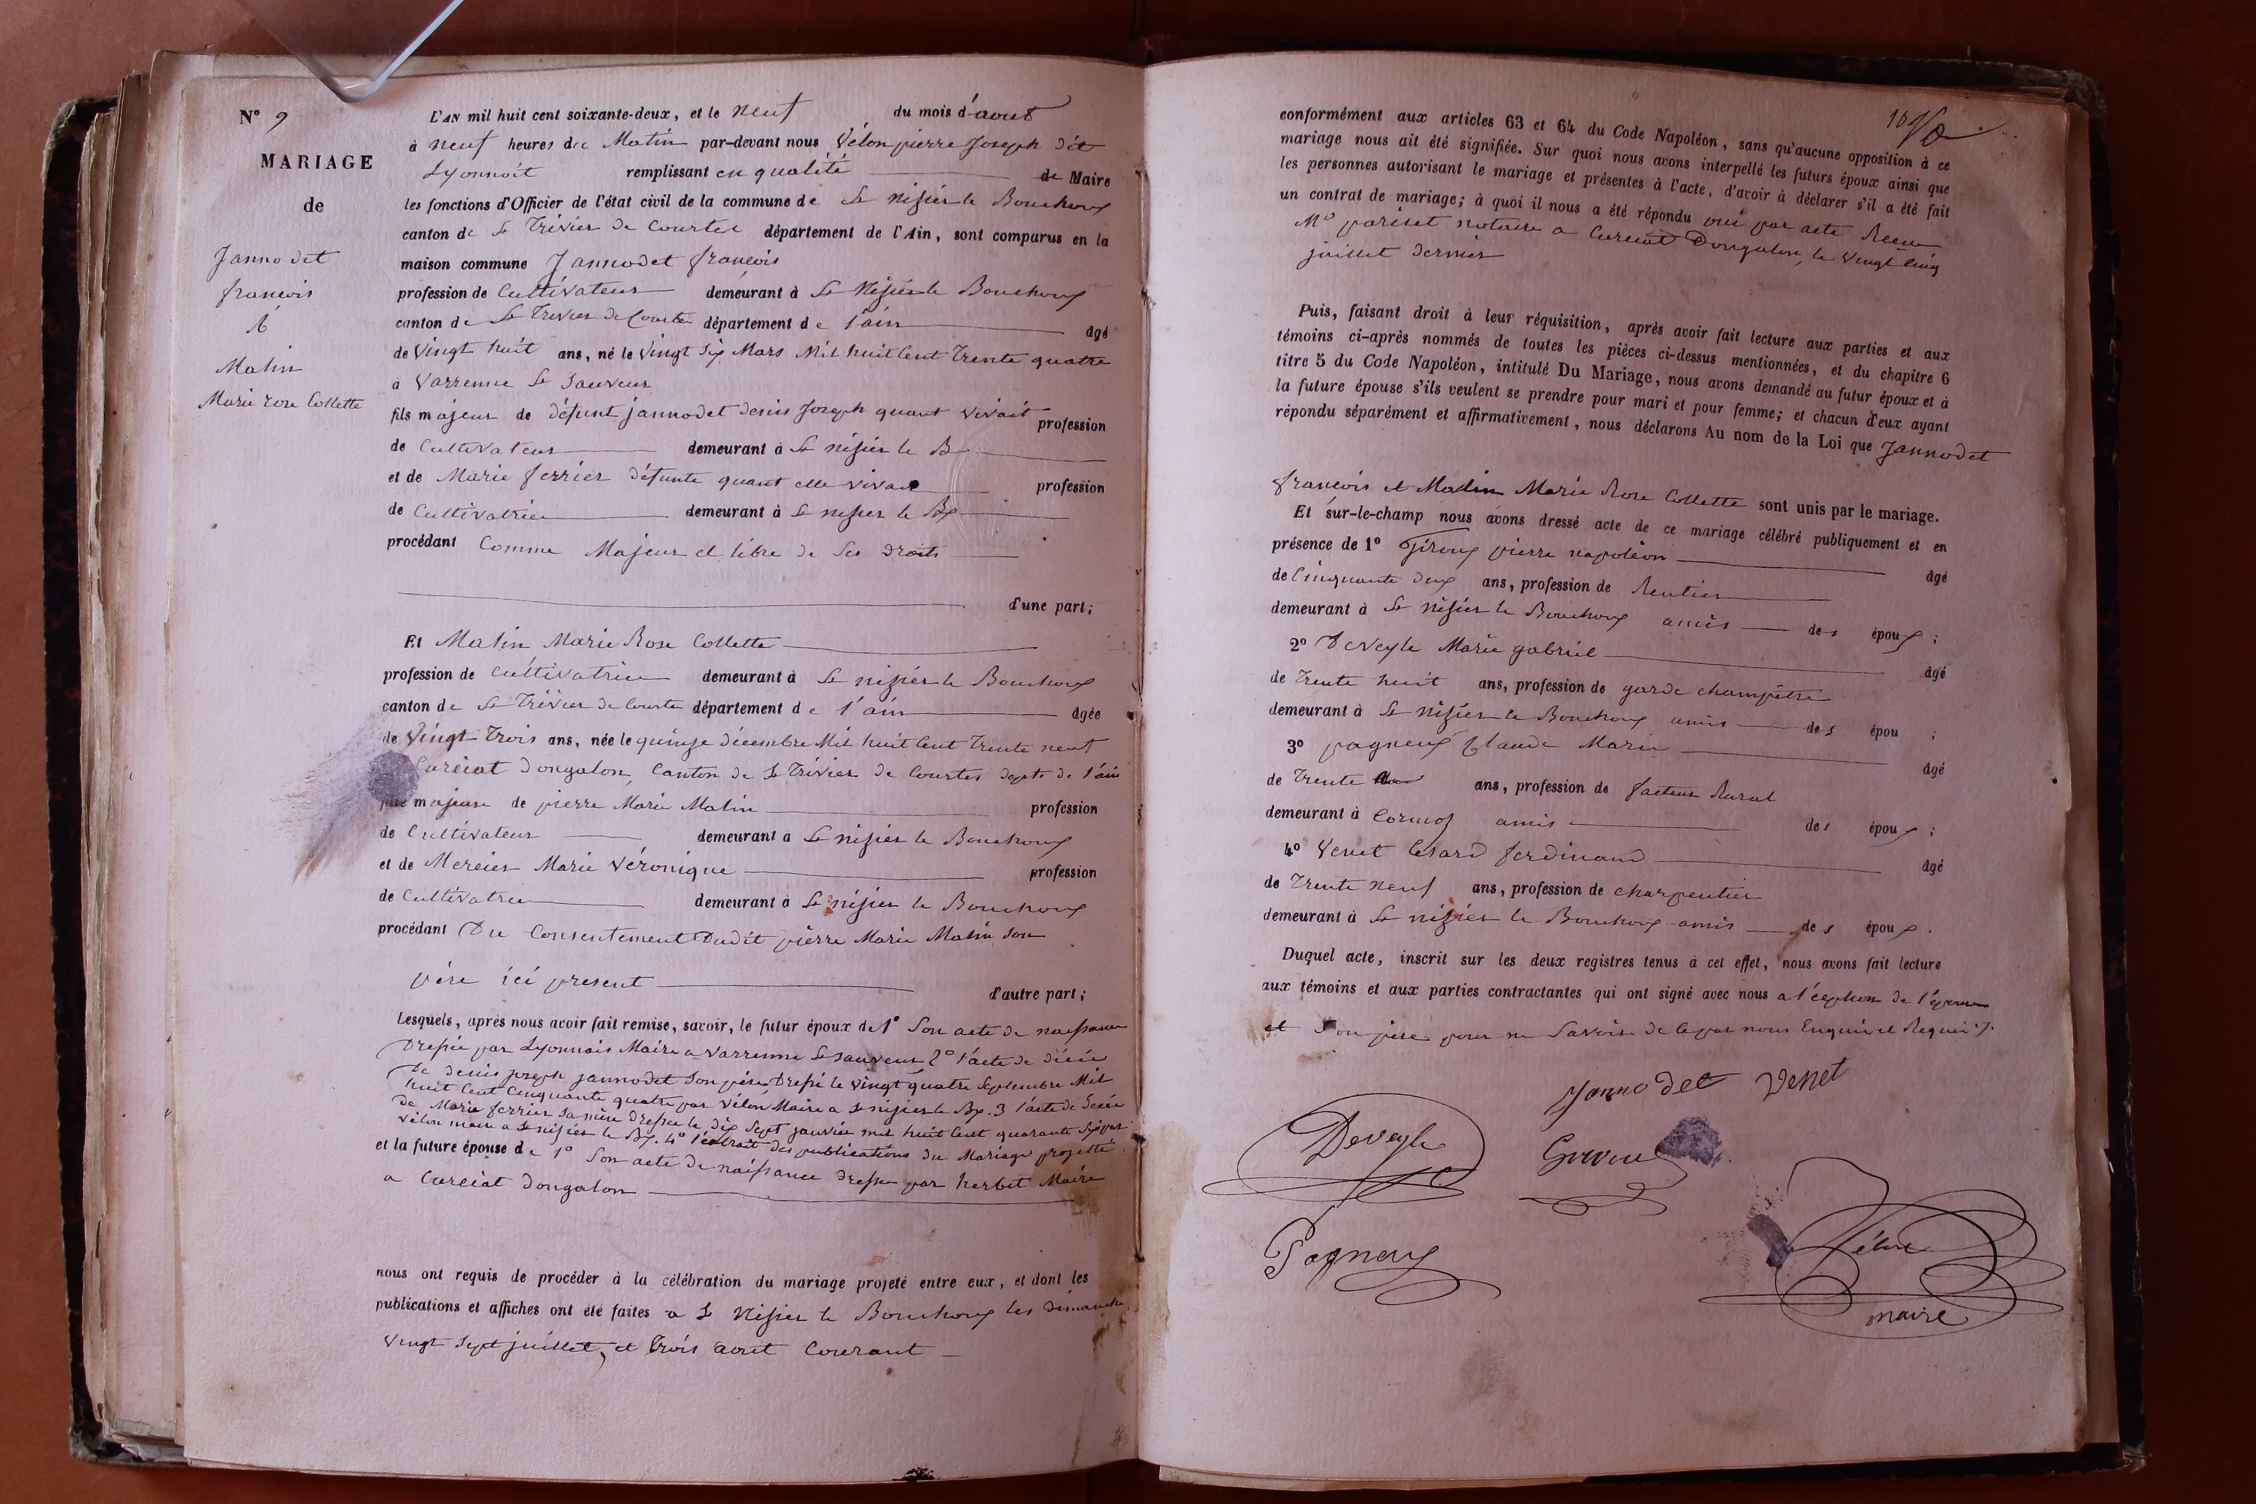 N° 9
MARIAGE
de
Jannodet
françois
&
Matin
Marie rose Collette
L'AN mil huit cent soixante-deux, et le neuf du mois d'aout
à neuf heures du Matin par-devant nous Vélon pierre Joseph dit
Lyonnoit remplissant en qualité de Maire
les fonctions d'Officier de l'état civil de la commune de St nizier le Bouchoux
canton de St Trivier de Courtes département de l'Ain, sont comparus en la
maison commune Jannodet françois
profession de Cultivateur demeurant à St Nizier le Bouchoux
canton de St Trivier de Courtes département de l'ain âgé
de Vingt huit ans, né le Vingt Six Mars Mil huit Cent Trente quatre
à Varrenne St Sauveur
fils majeur de défunt jannodet denis Joseph quant vivait profession
de Cultivateur demeurant à St nizier le B
et de Marie ferrier défunte quant elle vivait profession
de Cultivatrice demeurant à St nizier le Bx
procédant Comme Majeur et libre de Ses droits
d'une part;
Et Matin Marie Rose Collette
profession de cultivatrice demeurant à St nizier le Bouchoux
canton de St Trivier de Courtes département de l'ain âgée
de Vingt Trois ans, née le quinze décembre Mil huit Cent Trente neuf
Curciat dongalon, Canton de St Trivier de Courtes depte de l'ain
fille majeure de pierre Marie Matin profession
de Cultivateur demeurant à St nizier le Bouchoux
et de Mercier Marie Véronique profession
de Cultivatrice demeurant à St nizier le Bouchoux
procédant Du Consentement Dudit pierre Marie Matin son
père ici present d'autre part;
Lesquels, après nous avoir fait remise, savoir, le futur époux de 1° Son acte de naissance
Dressée par Lyonnais Maire a Varrenne St Sauveur 2° l'acte de décée
De denis joseph jannodet Son père Dressé le Vingt quatre Septembre Mil
huit Cent Cinquante quatre par Vélon Maire a St nizier le Bx. 3 l'acte de Décée
de Marie ferrier Sa mère dressée le dix Sept janvier mil huit Cent quarante Six par
Vélon maire a St nizier le Bx. 4° l'éxtrait des publications du Mariage projetté
et la future épouse de 1° Son acte de naissance dressée par herbet Maire
a Curciat dongalon
nous ont requis de procéder à la célébration du mariage projeté entre eux, et dont les
publications et affiches ont été faites a St Nizier le Bouchoux les dimanche
Vingt Sept juillet, et Trois aout Courant
conformément aux articles 63 et 64 du Code Napoléon, sans qu'aucune opposition à ce
mariage nous ait été signifiée. Sur quoi nous avons interpellé les futurs époux ainsi que
les personnes autorisant le mariage et présentes à l'acte, d'avoir à déclarer s'il a été fait
un contrat de mariage; à quoi il nous a été répondu oui par acte Recu
Me pariset notaire a Curciat Dongalon, le Vingt Cinq
juillet dernier
Puis, faisant droit à leur réquisition, après avoir fait lecture aux parties et aux
témoins ci-après nommés de toutes les pièces ci-dessus mentionnées, et du chapitre 6
titre 5 du Code Napoléon, intitulé Du Mariage, nous avons demandé au futur époux et à
la future épouse s'ils veulent se prendre pour mari et pour femme; et chacun d'eux ayant
répondu séparément et affirmativement, nous déclarons Au nom de la Loi que Jannodet
françois et Matin Marie Rose Collette sont unis par le mariage.
Et sur-le-champ nous avons dressé acte de ce mariage célébré publiquement et en
présence de 1° Giroux pierre napoléon âgé
de Cinquante deux ans, profession de Rentier
demeurant à St nizier le Bouchoux amis des époux;
2° Deveyle Marie gabriel âgé
de Trente huit ans, profession de garde champêtre
demeurant à St nizier le Bouchoux amis des épou ;
3° pagneux Claude Marie âgé
de Trente ans, profession de facteur Rural
demeurant à Cormoz amis des époux;
4° Venet Césard ferdinand âgé
de Trente neuf ans, profession de charpentier
demeurant à St nizier le Bouchoux amis des époux.
Duquel acte, inscrit sur les deux registres tenus à cet effet, nous avons fait lecture
aux témoins et aux parties contractantes qui ont signé avec nous a l'éception de l'épouse
et Son père pour ne Savoir de ce par nous Enquis et Requis
Jannodet Venet
Deveyle
Giroux
Pagneux
Vélon
maire